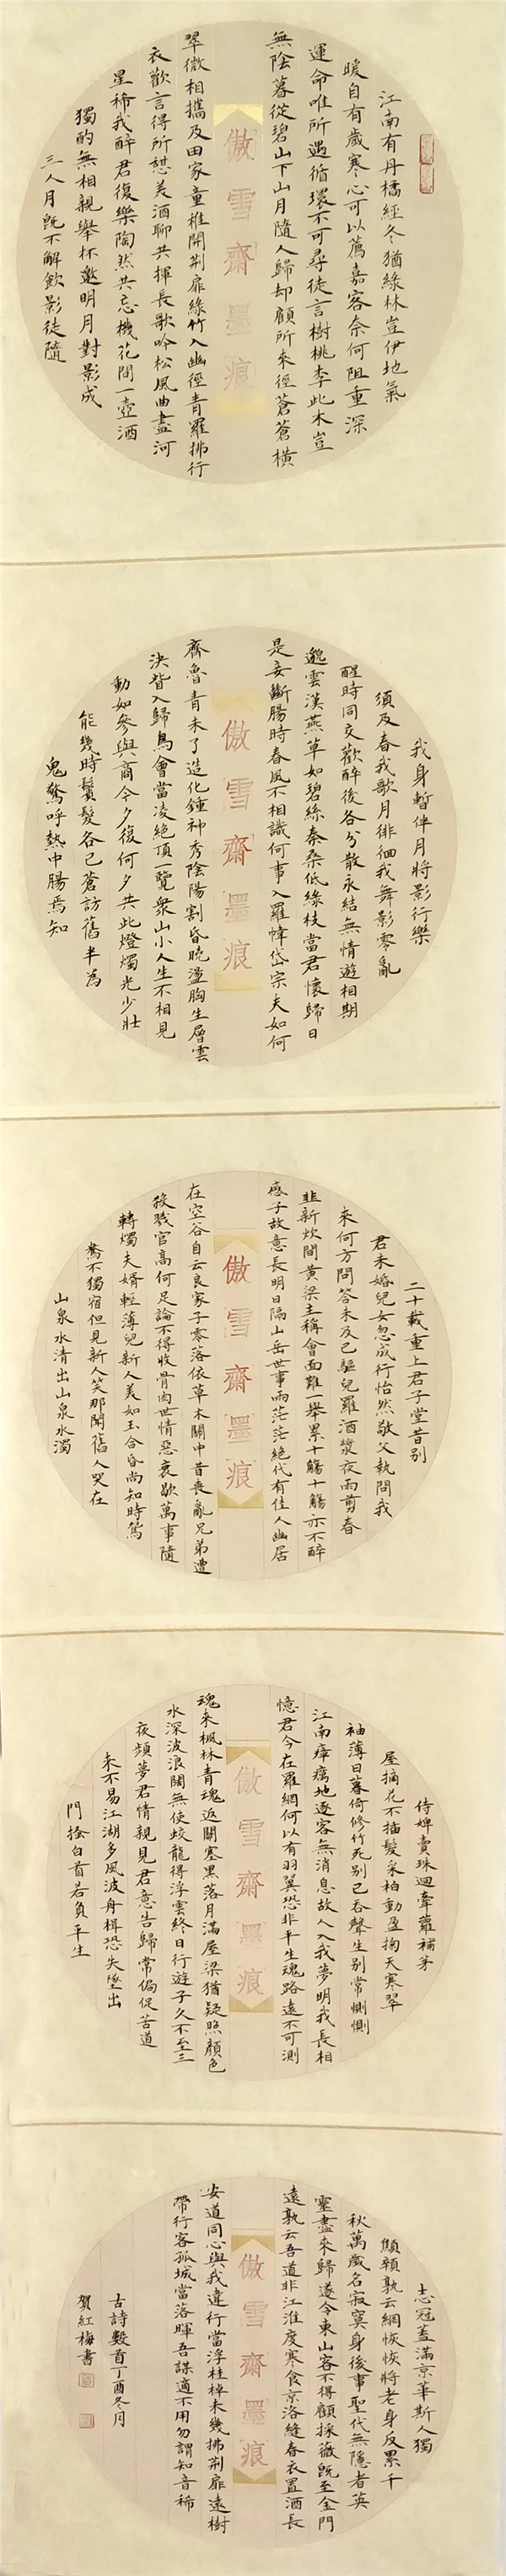 江南有丹橘經冬猶綠林豈伊地氣
暖自有歲寒心可以薦嘉客奈何阻重深
運命唯所遇循環不可尋徒言樹桃李此木豈
無陰暮從碧山下山月隨人歸却顧所來徑蒼蒼橫
傲雪齋墨痕
翠微相攜及田家童稚開荊扉綠竹入幽徑青蘿拂行
衣歡言得所憩美酒聊共揮長歌吟松風曲盡河
星稀我醉君復樂陶然共忘機花間一壺酒
獨酌無相親舉杯邀明月對影成
三人月既不解飲影徒隨
我身暫伴月將影行樂
須及春我歌月徘徊我舞影零亂
醒時同交歡醉後各分散永結無情遊相期
邈雲漢燕草如碧絲秦桑低綠枝當君懷歸日
是妾斷腸時春風不相識何事入羅幃岱宗夫如何
傲雪齋墨痕
齊魯青未了造化鍾神秀陰陽割昏曉盪胸生層雲
決眥入歸鳥會當凌絕頂一覽衆山小人生不相見
動如參與商今夕復何夕共此燈燭光少壯
能幾時鬢髮各已蒼訪舊半為
鬼驚呼熱中腸焉知
二十載重上君子堂昔別
君未婚兒女忽成行怡然敬父執問我
來何方問答未及已驅兒羅酒漿夜雨剪春
韭新炊間黃梁主稱會面難一舉累十觴十觴亦不醉
感子故意長明日隔山岳世事兩茫茫絕代有佳人幽居
傲雪齋墨痕
在空谷自云良家子零落依草木關中昔喪亂兄弟遭
殺戮官高何足論不得收骨肉世情惡衰歇萬事隨
轉燭夫婿輕薄兒新人美如玉合昏尚知時鴛
鴦不獨宿但見新人笑那聞舊人哭在
山泉水清出山泉水濁
侍婢賣珠迴牽蘿補茅
屋摘花不插髮采柏動盈掬天寒翠
袖薄日暮倚修竹死別已吞聲生別常惻惻
江南瘴癘地逐客無消息故人入我夢明我長相
憶君今在羅網何以有羽翼恐非平生魂路遠不可測
傲雪齋墨痕
魂來楓林青魂返關塞黑落月滿屋梁猶疑照顏色
水深波浪闊無使蛟龍得浮雲終日行遊子久不至三
夜頻夢君情親見君意告歸常侷促苦道
來不易江湖多風波舟楫恐失墜出
門搔白首若負平生
志冠蓋滿京華斯人獨
顦顇孰云網恢恢將老身反累千
秋萬歲名寂寞身後事聖代無隱者英
靈盡來歸遂令東山客不得顧採薇既至金門
遠孰云吾道非江淮度寒食京洛縫春衣置酒長
傲雪齋墨痕
安道同心與我違行當浮桂棹未幾拂荊扉遠樹
帶行客孤城當落暉吾謀適不用勿謂知音稀
古詩數首丁酉冬月
賀紅梅書